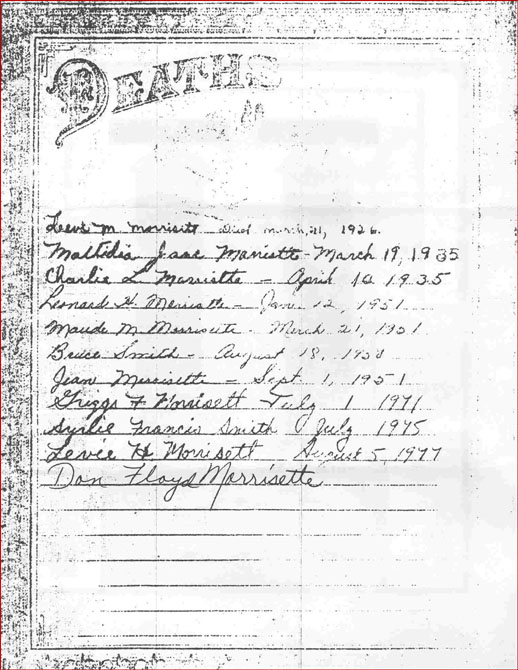 DEATHS
Levi M. Morrisett Died March, 21, 1926.
Mathidia Isaac Morrisette - March 19, 1935
Charlie L. Morrisette - April 10 1935
Leonard H. Morrisette - Jan. 12, 1951
Maude M. Morrisette - March 21, 1951
Bruce Smith - August 18, 1950
Jean Morrisette - Sept 1, 1951
Griggs F Morrisett July 1 1971
Francis Smith July 1975
Levie H Morrisett August 5, 1977
Don Floyd Morrisette